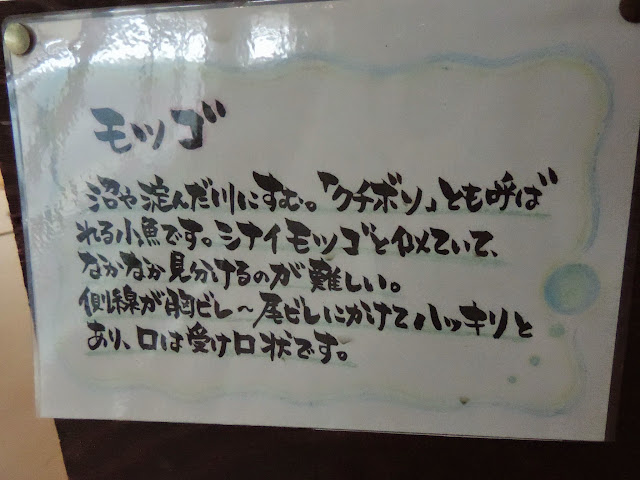 モツゴ
沼や淀んだ川にすむ。「クチボソ」とも呼ば
れる小魚です。シナイモツゴと似ていて、
なかなか見分けるのが難しい。
側線が胸ビレ～尾ビレにかけてハッキリと
あり、口は受け口状です。